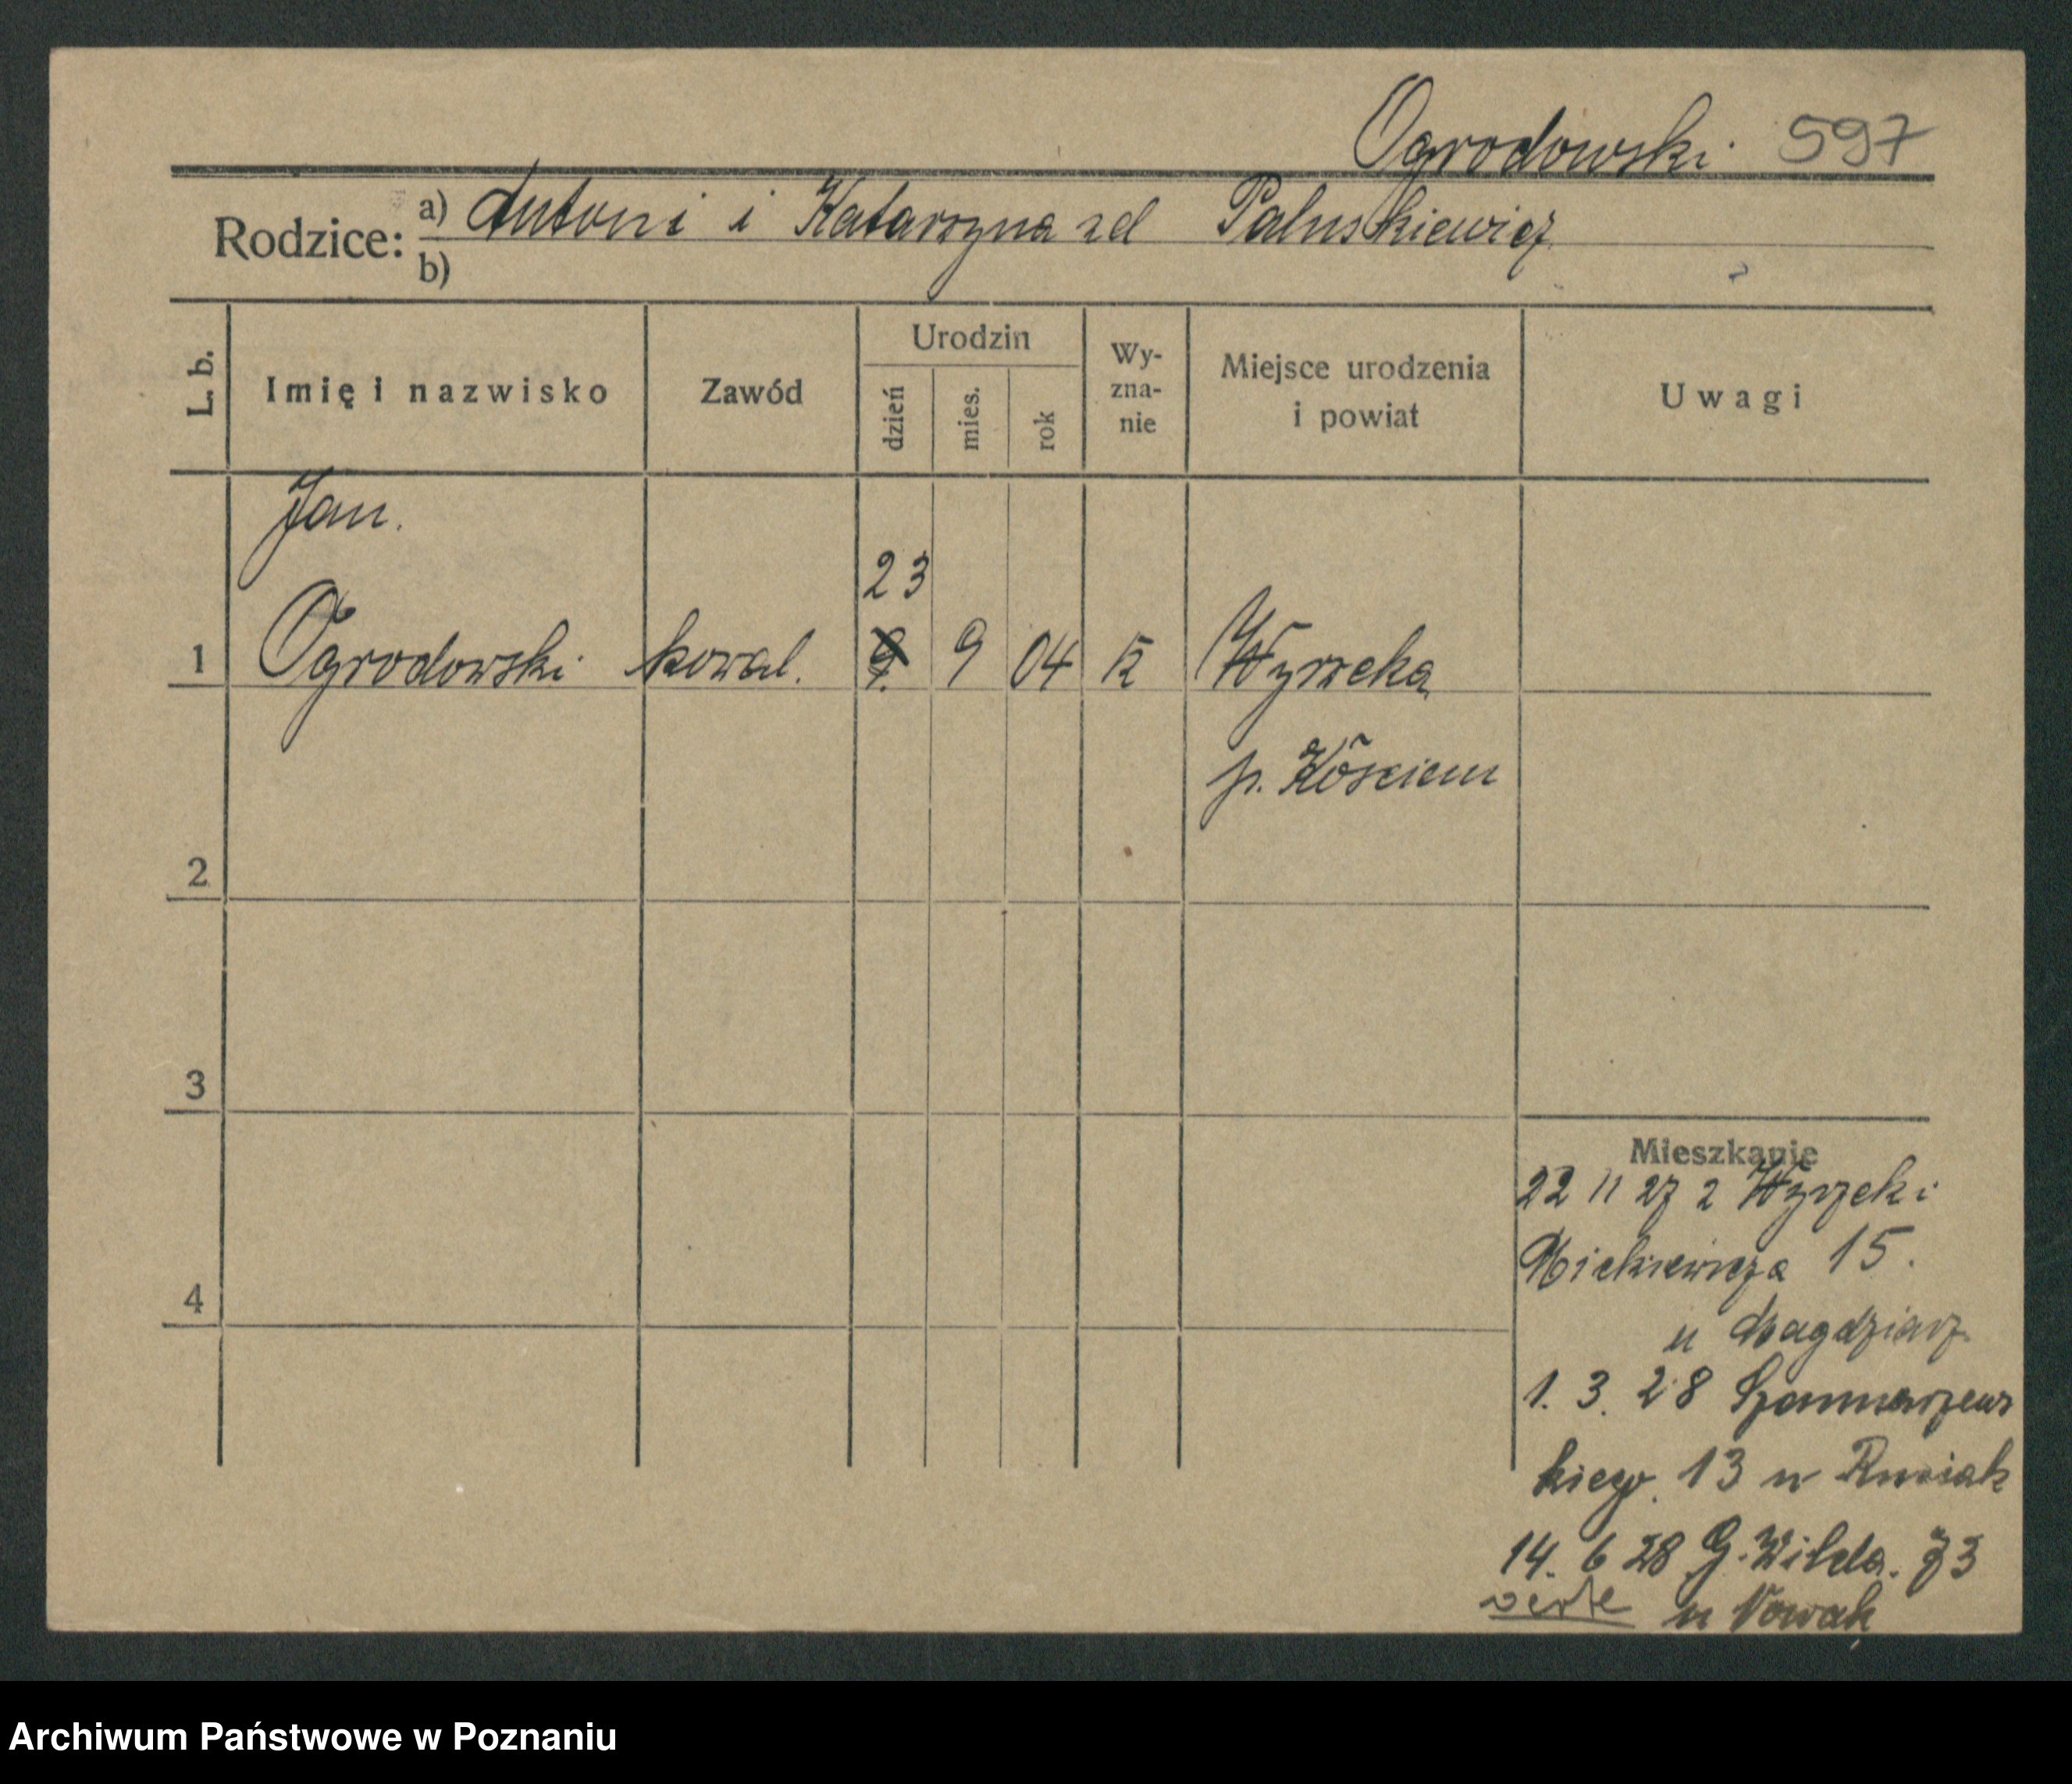 Ogrodowski. 597
Rodzice: a) Antoni i Katarzyna zd Paluszkiewicz
b)
L. b. Imię i nazwisko Zawód Urodzin dzień mies. rok Wy-zna-nie Miejsce urodzenia i powiat Uwagi
Jan.
23
1 Ogrodowski kowal. 9 04 k Wyrzeka
p. Kościan
2
3
Mieszkanie
22 11 27 z Wyrzeki
Mickiewicza 15.
4
u
1. 3. 28 Szamarzews
kiego. 13 u
14. 6 28 G. Wilda. 73
verte u Nowak
Archiwum Państwowe w Poznaniu